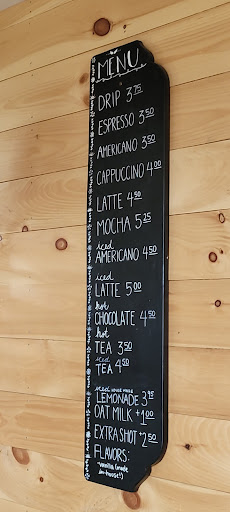 MENU
DRIP 3.75
ESPRESSO 3.50
AMERICANO 3.50
CAPPUCCINO 4.00
LATTE 4.50
MOCHA 5.25
iced
AMERICANO 4.50
iced
LATTE 5.00
hot
CHOCOLATE 4.50
hot
TEA 3.50
iced
TEA 4.50
iced HOUSE MADE
LEMONADE 3.95
OAT MILK +1.00
EXTRA SHOT +2.50
FLAVORS:
*vanilla (made
in-house!)